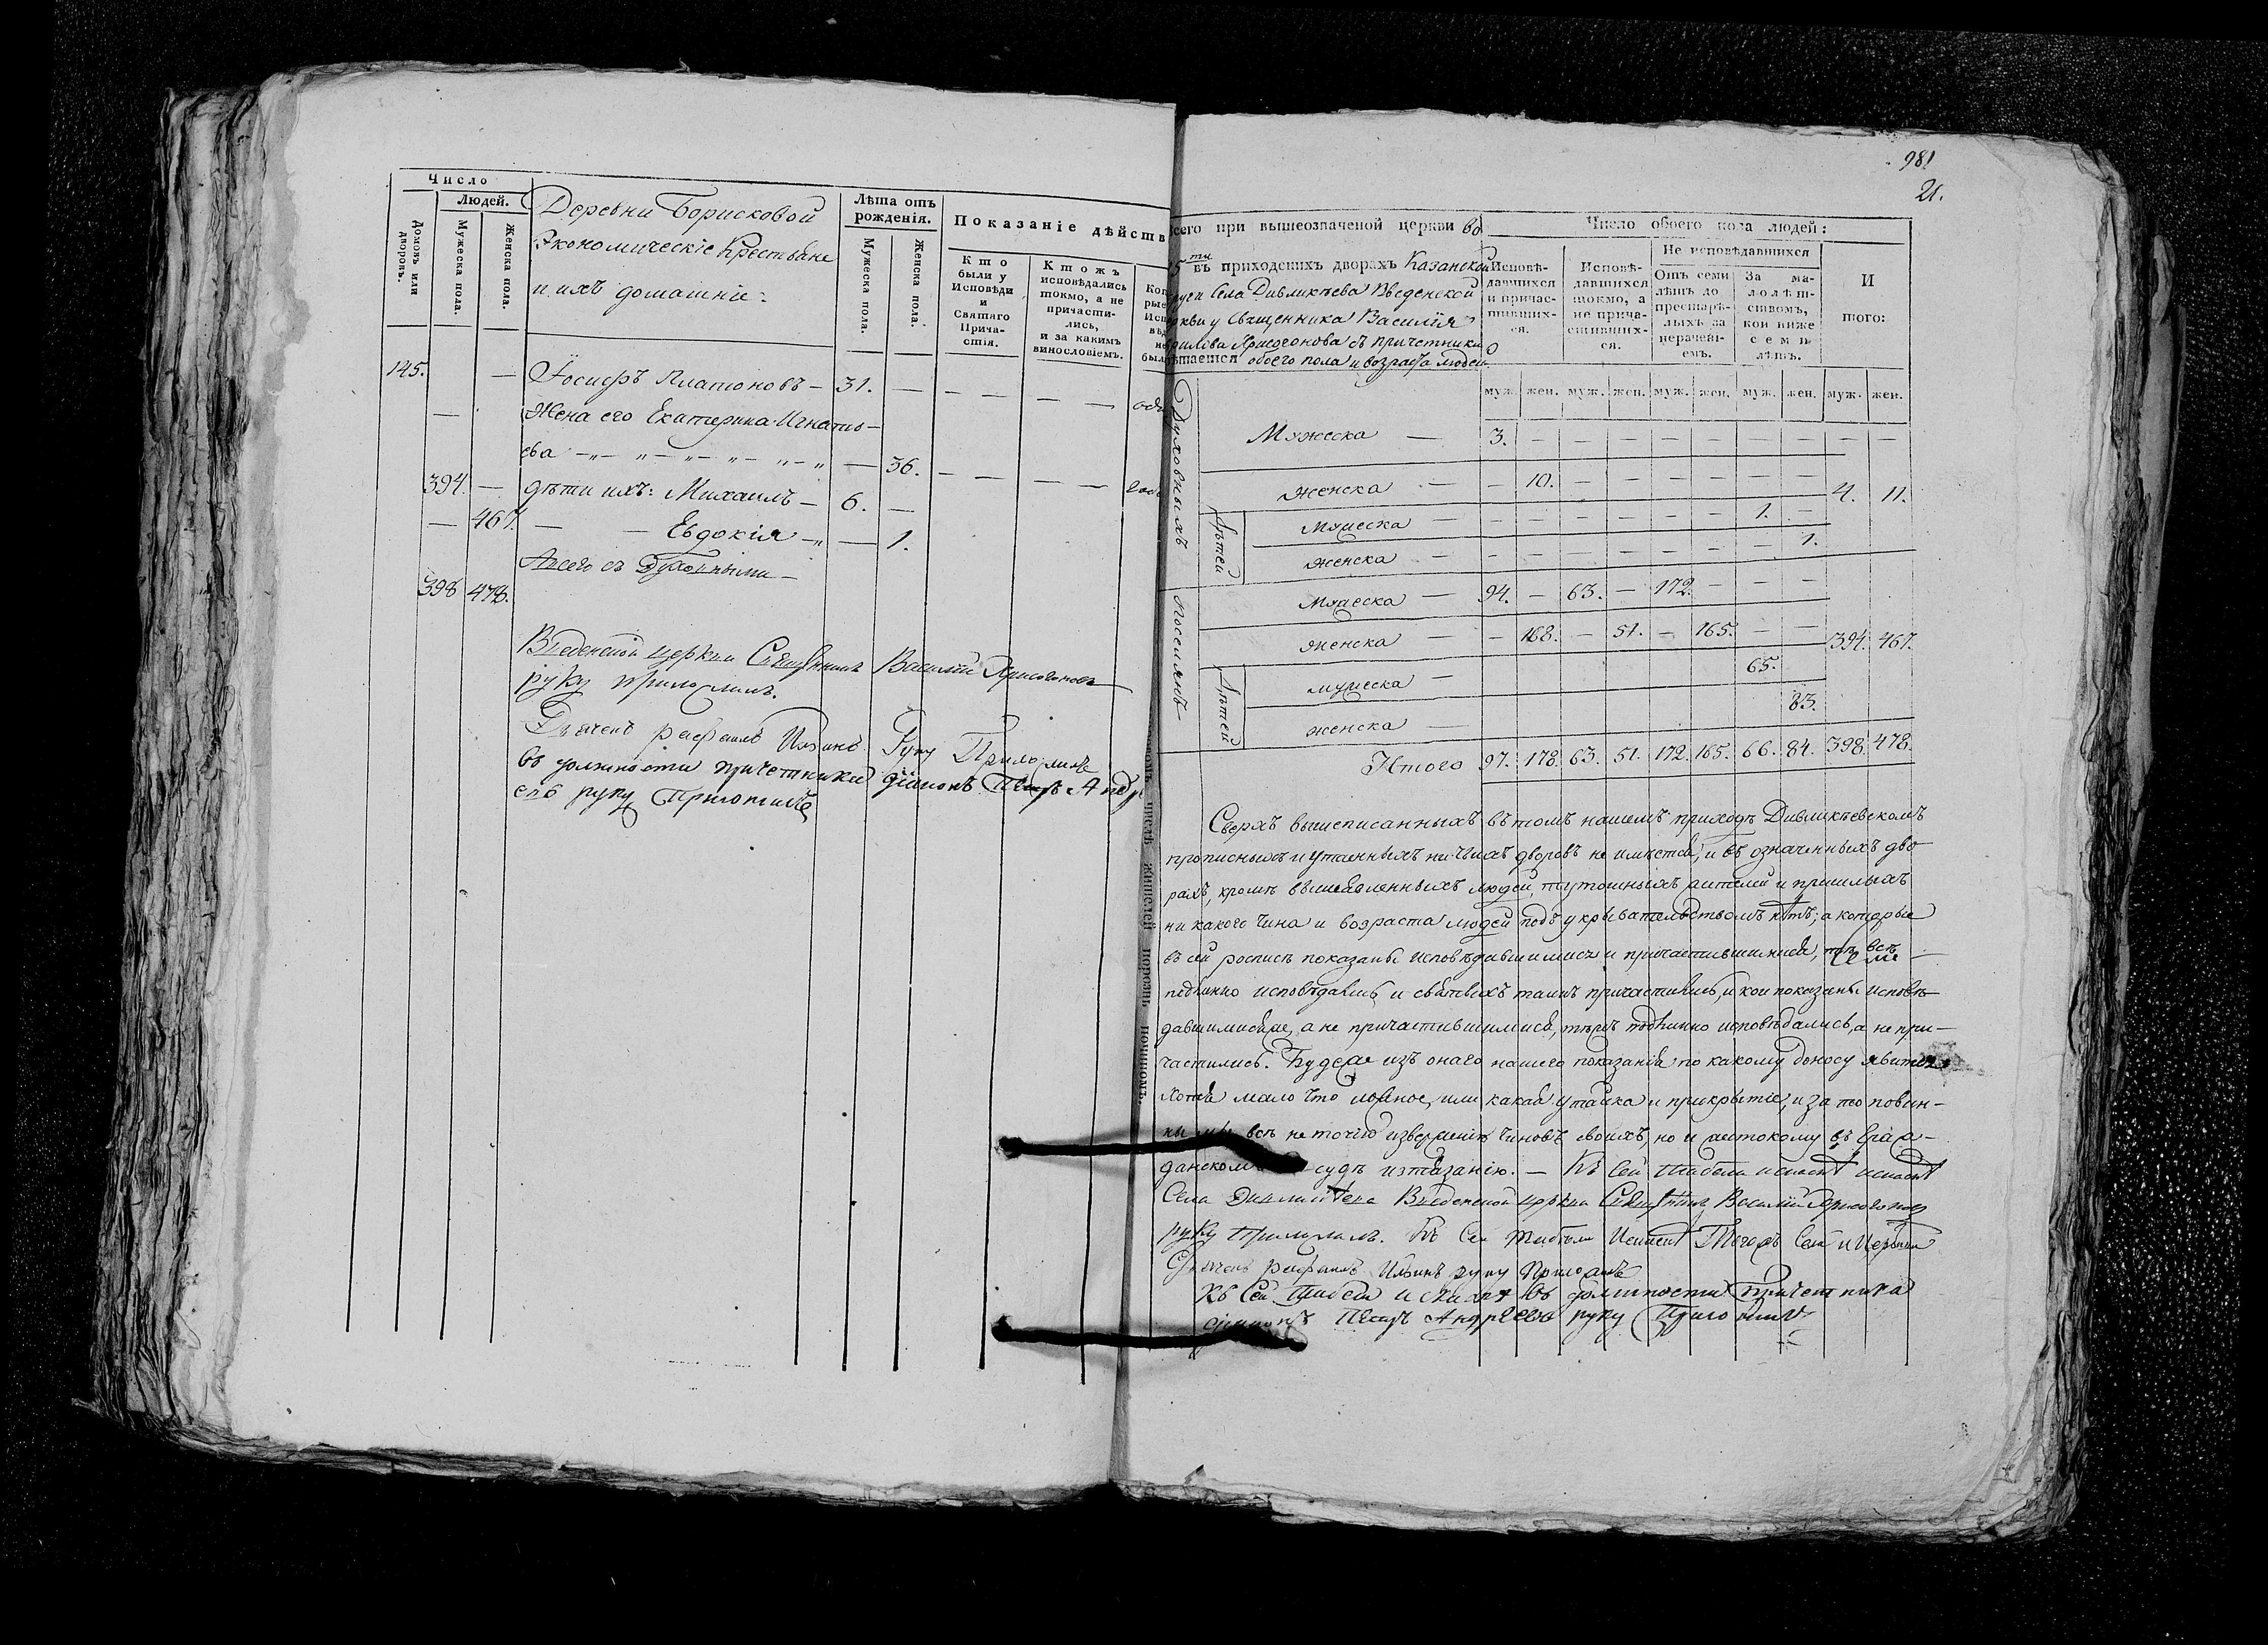 Число
Людей.
Домовъ или дворовъ.
Мужеска пола.
Женска пола.
Деревни Борисковой
Экономическіе Крестьяне
и ихъ домашніе:
Лѣта отъ рожденія.
Мужеска пола.
Женска пола.
Показаніе дѣйств
Кто были у Исповѣди и Святаго Причастія.
Ктожъ исповѣдались токмо, а не причастились, и за какимъ винословіемъ.
145. — Іосифъ Платоновъ — 31. —
— Жена его Екатерина Игнатье-
ва — 36.
394. — дѣти ихъ: Михаилъ — 6. —
— 467. — — Евдокія — 1.
Всего съ Духовными —
398 478.
Введенской церкви Священникъ Василій Хрисогоновъ
руку приложилъ.
Дьячекъ Рафаилъ Ильинъ Руку Приложилъ
въ должности причетника діаконъ Петръ Андр
евъ руку Приложилъ
981
21.
сего при вышеозначеной церкви во
5ти въ приходскихъ дворахъ Казанской
Села Дивликѣева Введенской
ркви у Священника Василія
Хрисогонова съ причетники
обоего пола и возраста людей
Число обоего пола людей:
Исповѣдавшихся и причастившихся.
Исповѣдавшихся токмо, а не причастившихся.
Не исповѣдавшихся
Отъ семи лѣтъ до престарѣлыхъ за нерачені-емъ.
За малолѣтствомъ, кои ниже семи лѣтъ.
И того:
муж. жен. муж. жен. муж. жен. муж. жен. муж. жен.
Духовныхъ
Мужеска — 3. — — — — — — — — —
Женска — — 10. — — — — — — 4. 11.
Дѣтей
Мужеска — — — — — — — 1. —
Женска — — — — — — — — 1.
Поселянъ
Мужеска — 94. — 63. — 172. — — —
Женска — — 168. — 51. — 165. — — 394. 467.
Дѣтей
мужеска — 65.
женска — 83.
Итого 97. 178. 63. 51. 172. 165. 66. 84. 398. 478.
Сверхъ вышеписанныхъ въ томъ нашемъ приходѣ Дивликѣевскомъ
прописныхъ и утаенныхъ ни чьихъ дворовъ не имѣется, и въ означенныхъ дво-
рахъ, кромѣ выявленныхъ людей, тутошнихъ жителей и пришлыхъ
ни какого чина и возраста людей подъ укрывательствомъ нѣтъ; а которые
въ сей росписѣ показаны исповѣдавшимися и причастившимися, тѣ всѣ
подлинно исповѣдались и святыхъ таинъ причастились, и кои показаны исповѣ-
давшимися, а не причастившимися, тѣ подлинно исповѣдались, а не при-
частились. Будеже изъ онаго нашего показанія по какому доносу явится
хотя мало что ложное, или какая утайка и прикрытіе, и за то повин-
ны мы всѣ не точію изверженію чиновъ своихъ, но и жестокому въ Граж-
данскомъ судѣ изтязанію. — Къ Сей Табели
Села Введенской церкви Священникъ Василій Хрисогоновъ
руку приложилъ. Къ Сей Табели Тогожъ Села и Церкви
Дьячекъ Рафаилъ Ильинъ руку Приложилъ
Къ Сей Табели въ должности Причетника
діаконъ Петръ Андреевъ руку Приложилъ